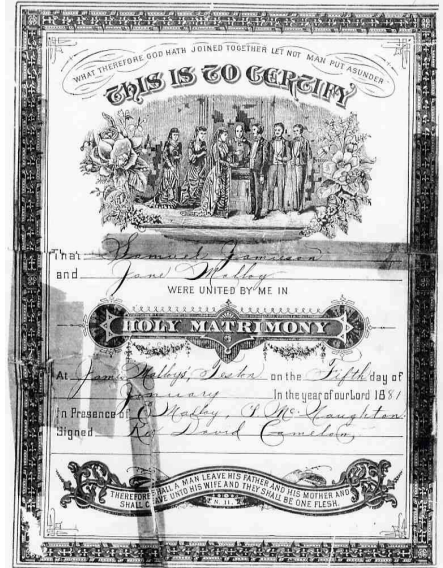 WHAT THEREFORE GOD HATH JOINED TOGETHER LET NOT MAN PUT ASUNDER
THIS IS TO CERTIFY
That Samuel Jamieson
and Jane Malloy
WERE UNITED BY ME IN
HOLY MATRIMONY
At Malloys, Teston on the Fifth day of
January In the year of our Lord 1881
In Presence of Malloy, McNaughton
Signed Rev David Cameron
THEREFORE SHALL A MAN LEAVE HIS FATHER AND HIS MOTHER AND
SHALL CLEAVE UNTO HIS WIFE AND THEY SHALL BE ONE FLESH.